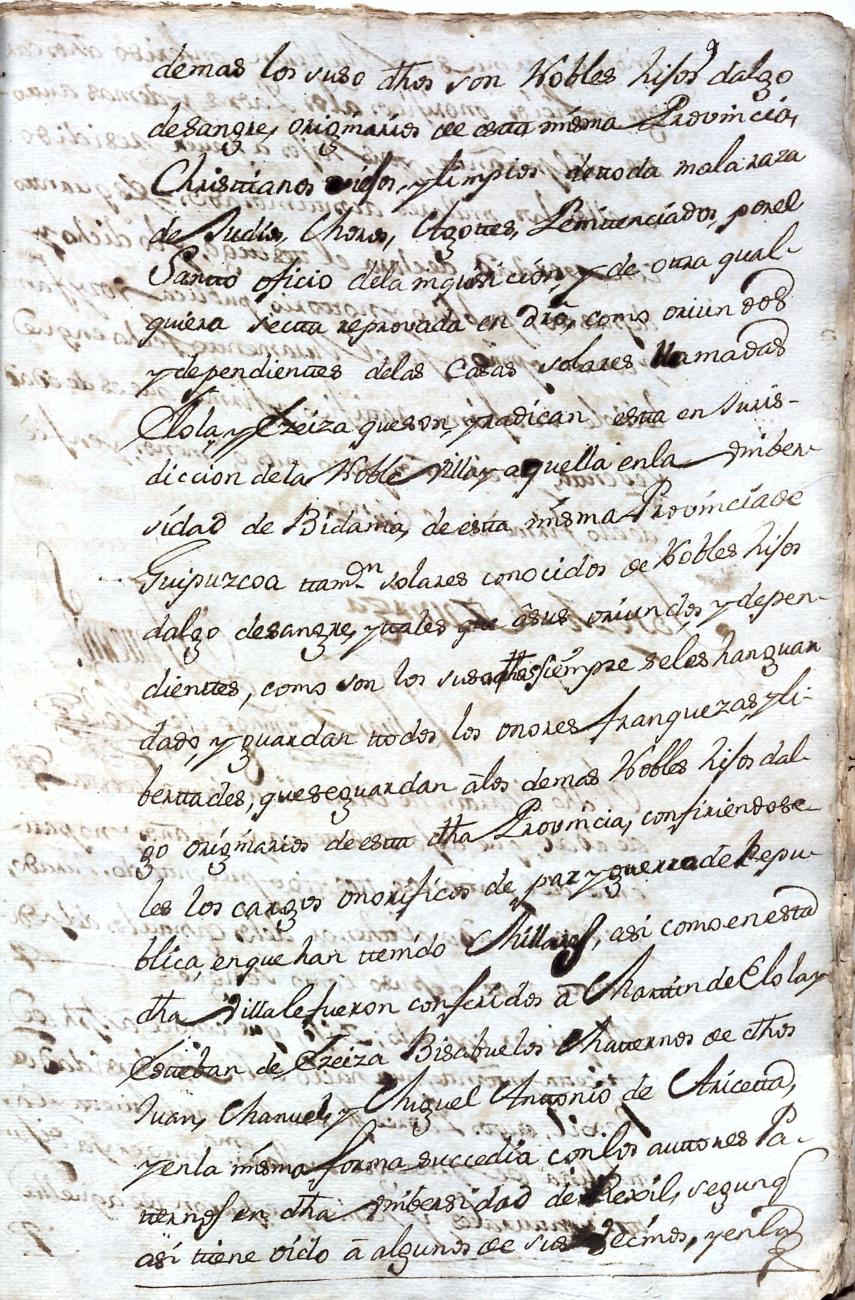 demas los suso dhos son Nobles hijos dalgo
de sangre, originarios de esta misma Provincia,
Christtianos viejos, y limpios de ttoda mala raza
de Judios, Moros, Agottes, Penitenciados, por el
Santto oficio de la inquisicion, y de otra qual-
quiera sectta reprovada en dro, como oriundos
y dependienttes de las Casas solares llamadas
Elola, y Ezeiza que son, y radican esta en Juris-
diccion de la Noble Villa, y aquella en la Vniber-
sidad de Bidania, de esta misma Provincia de
Guipuzcoa ttamvn solares conocidos de Nobles hijos
dalgo de sangre, y ttales que â sus oriundos, y depen-
dienttes, como son los suso dhos siempre se les han guar
dado, y guardan ttodos los onores franquezas, y li-
berttades, que se guardan â los demas Nobles hijos dal-
go originarios de esta dha Provincia, confiriendose-
les los cargos onorificos de paz y guerra de Repu-
blica, en que han ttenido Millares, asi como en esta
dha Villa le fueron conferidos â Martin de Elola, y
Esteban de Ezeiza Bisabuelos Matternos de dhos
Juan, Manuel, y Miguel Anttonio de Aricetta,
y en la misma forma succedia con los auttores Pa-
ternos en dha Vnibersidad de Rexil, segun q
asi ttiene oido â algunos de sus Vecinos, y en la